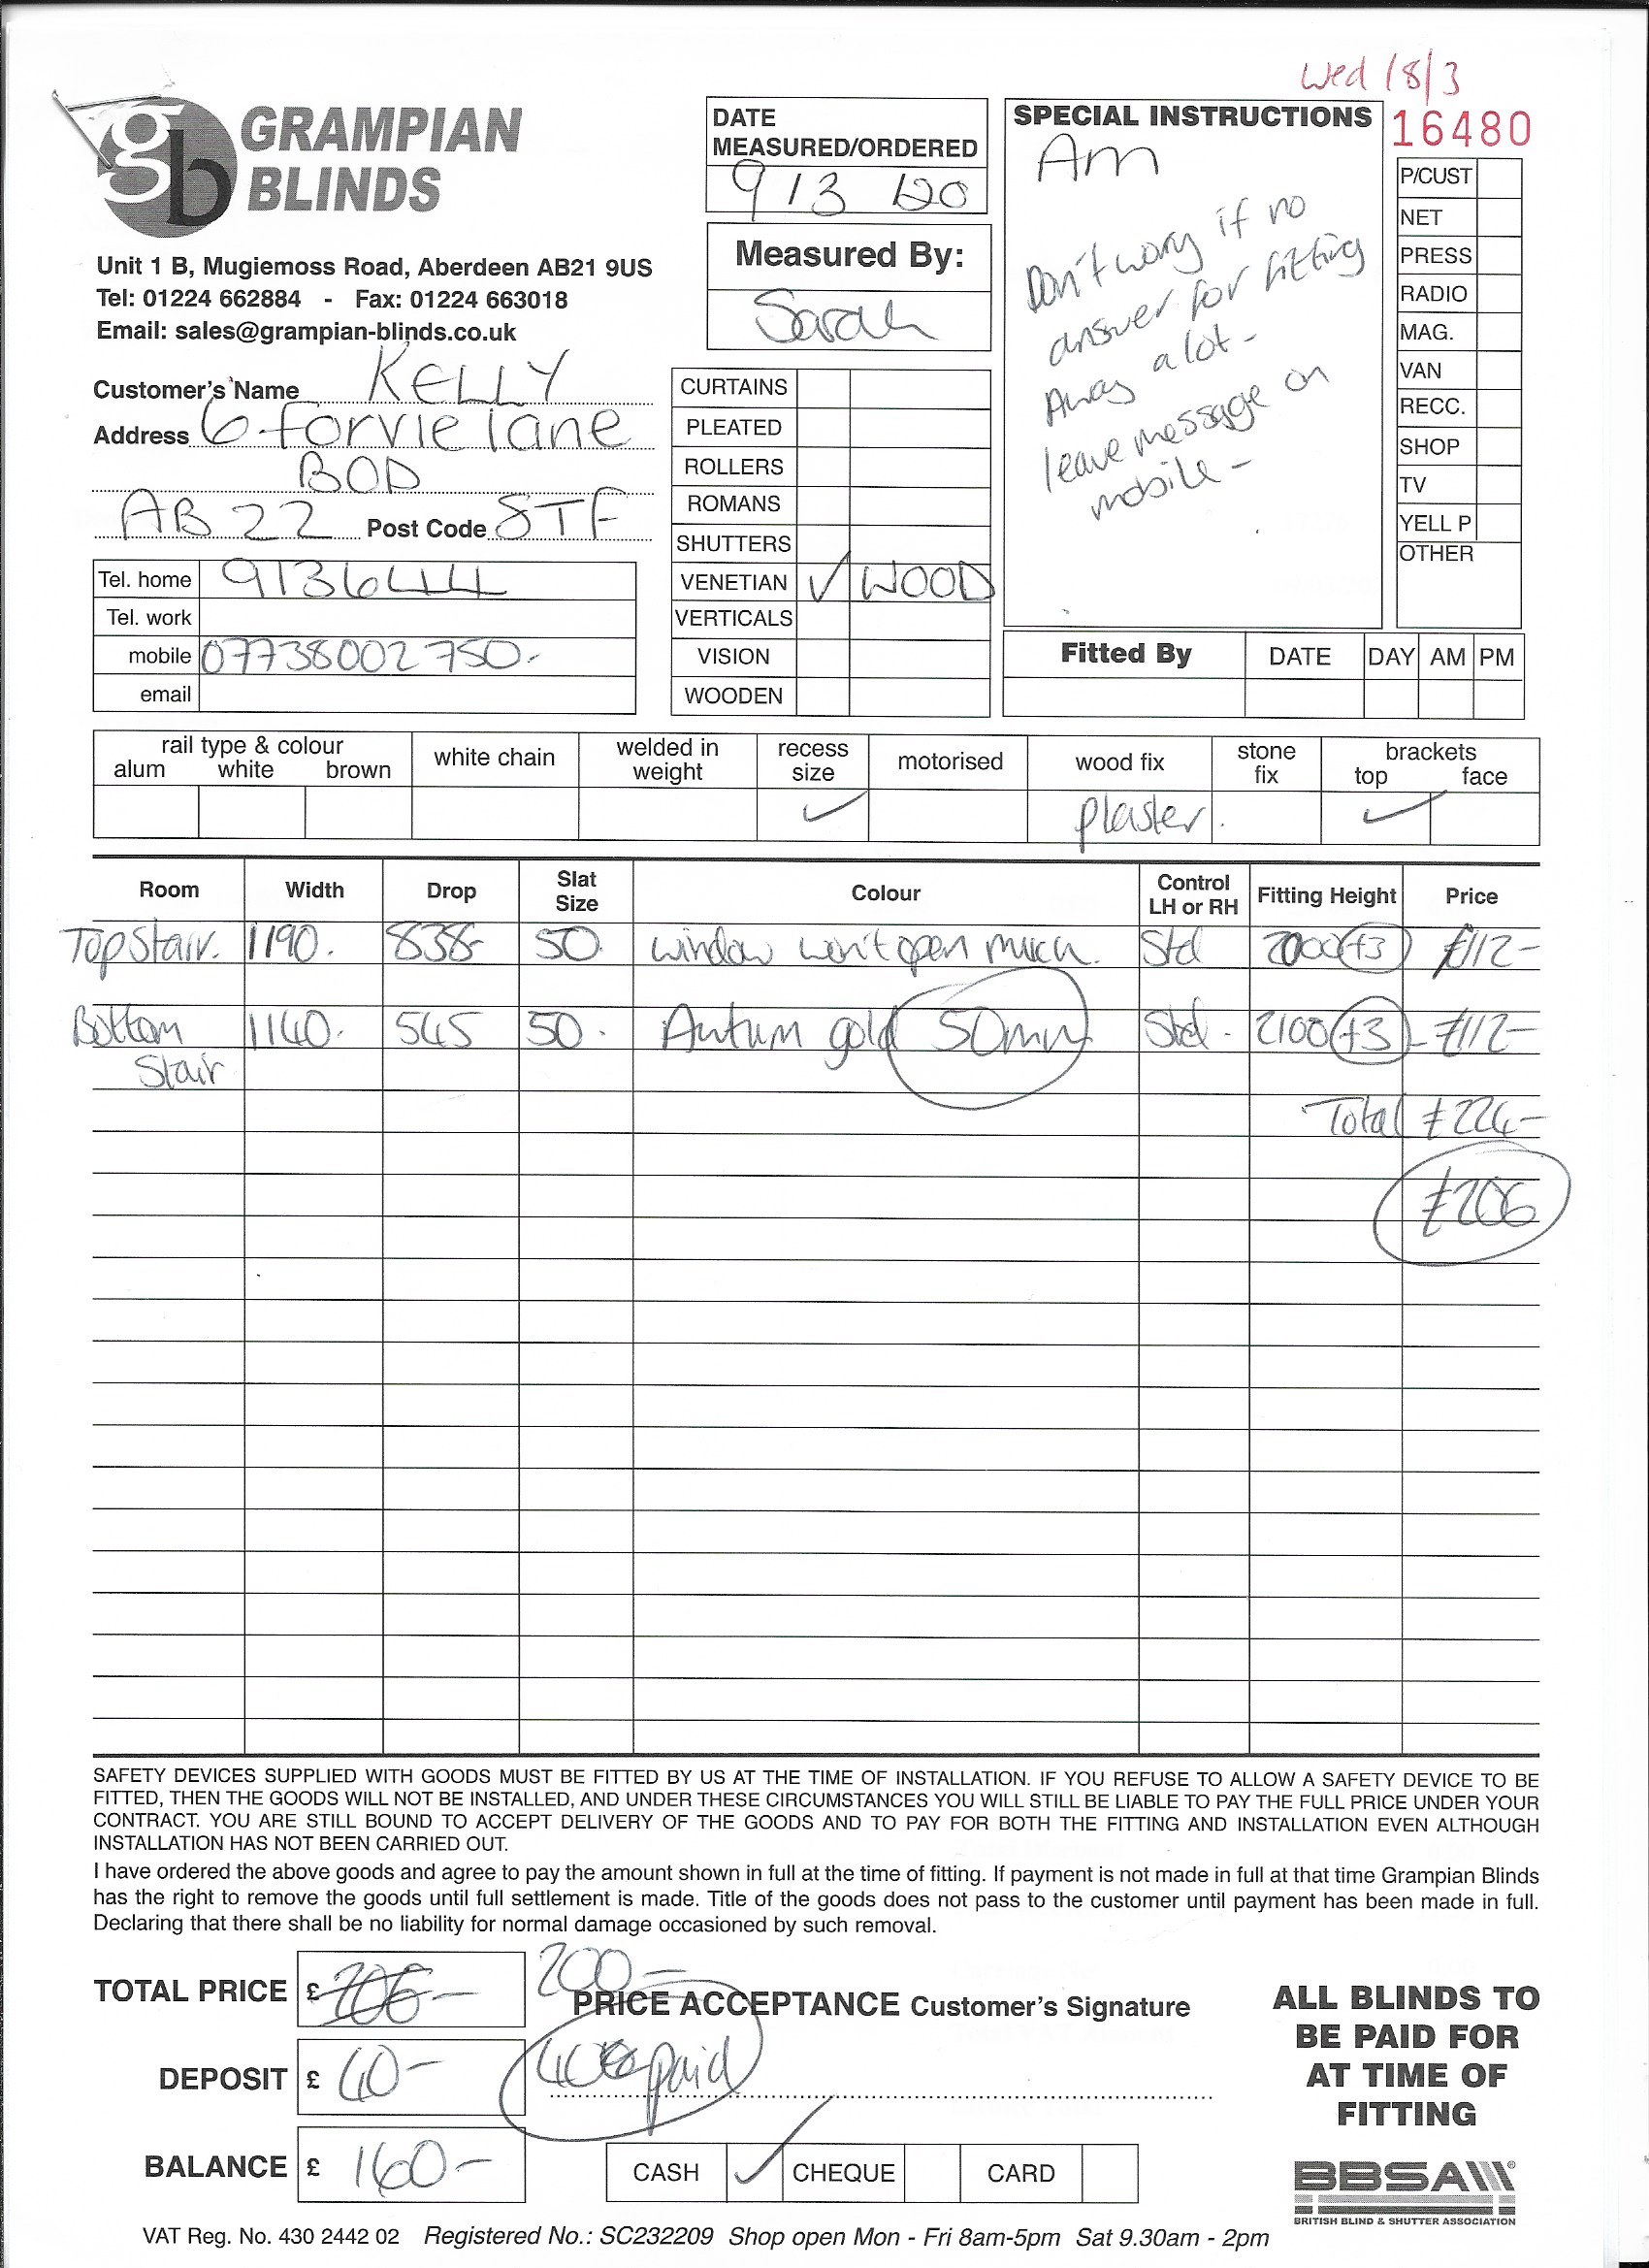 Wed 18/3
16480
gb GRAMPIAN BLINDS
Unit 1 B, Mugiemoss Road, Aberdeen AB21 9US
Tel: 01224 662884 - Fax: 01224 663018
Email: sales@grampian-blinds.co.uk
Customer's Name KELLY
Address 6 forvie lane
BOD
AB22 Post Code 8TF
Tel. home 9136444
Tel. work
mobile 07738002750.
email
DATE
MEASURED/ORDERED
9/3
Measured By:
Sarah
CURTAINS
PLEATED
ROLLERS
ROMANS
SHUTTERS
VENETIAN ✓ WOOD
VERTICALS
VISION
WOODEN
SPECIAL INSTRUCTIONS
Am
Don't worry if no
answer for fitting
Away a lot -
leave message on
mobile -
P/CUST
NET
PRESS
RADIO
MAG.
VAN
RECC.
SHOP
TV
YELL P
OTHER
Fitted By DATE DAY AM PM
rail type & colour
alum white brown
white chain
welded in weight
recess size ✓
motorised
wood fix plaster.
stone fix
brackets
top ✓ face
Room Width Drop Slat Size Colour Control LH or RH Fitting Height Price
Top Stair. 1190. 838 50. window won't open much. Std 2000 +3 £112-
Bottom 1140. 545 50. Autum gold 50mm Std. 2100 +3 £112-
Stair
Total £224-
£206
SAFETY DEVICES SUPPLIED WITH GOODS MUST BE FITTED BY US AT THE TIME OF INSTALLATION. IF YOU REFUSE TO ALLOW A SAFETY DEVICE TO BE
FITTED, THEN THE GOODS WILL NOT BE INSTALLED, AND UNDER THESE CIRCUMSTANCES YOU WILL STILL BE LIABLE TO PAY THE FULL PRICE UNDER YOUR
CONTRACT. YOU ARE STILL BOUND TO ACCEPT DELIVERY OF THE GOODS AND TO PAY FOR BOTH THE FITTING AND INSTALLATION EVEN ALTHOUGH
INSTALLATION HAS NOT BEEN CARRIED OUT.
I have ordered the above goods and agree to pay the amount shown in full at the time of fitting. If payment is not made in full at that time Grampian Blinds
has the right to remove the goods until full settlement is made. Title of the goods does not pass to the customer until payment has been made in full.
Declaring that there shall be no liability for normal damage occasioned by such removal.
TOTAL PRICE £ 206- 200-
PRICE ACCEPTANCE Customer's Signature
DEPOSIT £ 40- paid
BALANCE £ 160-
CASH ✓ CHEQUE CARD
ALL BLINDS TO
BE PAID FOR
AT TIME OF
FITTING
BBSA
BRITISH BLIND & SHUTTER ASSOCIATION
VAT Reg. No. 430 2442 02 Registered No.: SC232209 Shop open Mon - Fri 8am-5pm Sat 9.30am - 2pm